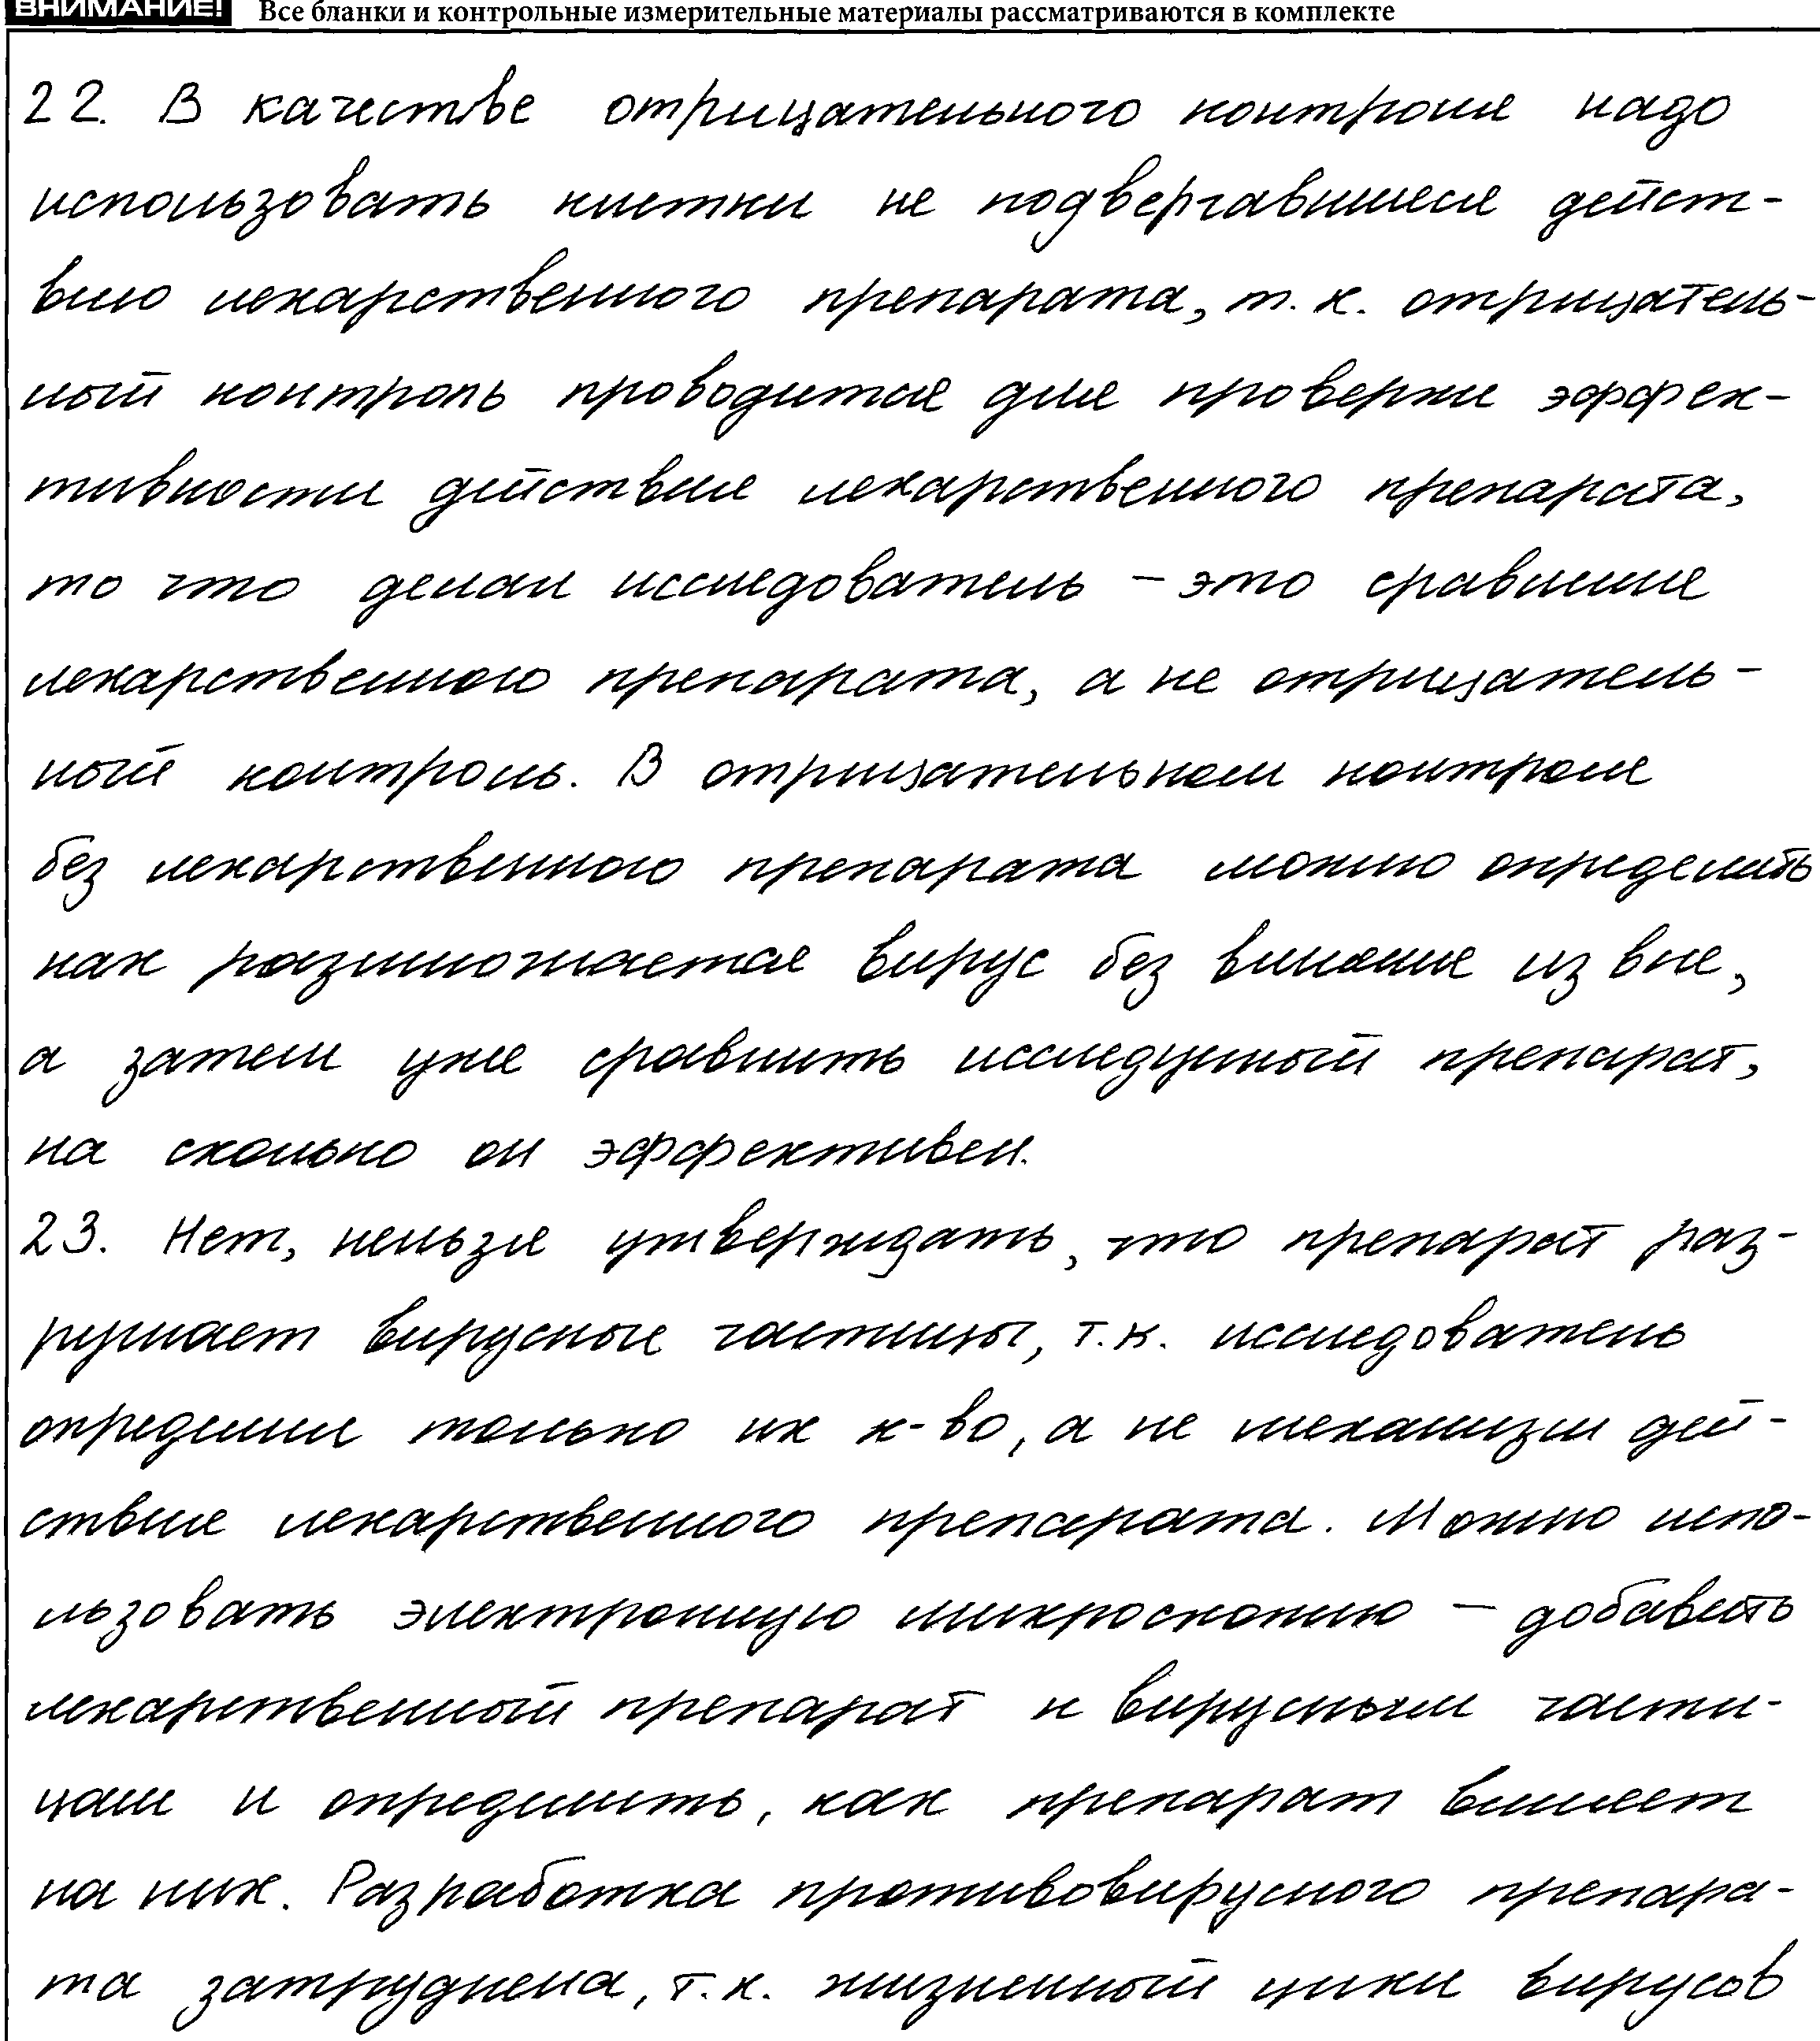 ВНИМАНИЕ! Все бланки и контрольные измерительные материалы рассматриваются в комплекте
22. В качестве отрицательного контроля надо
использовать клетки не подвергавшиеся дейст-
вию лекарственного препарата, т. к. отрицатель-
ный контроль проводится для проверки эффек-
тивности действия лекарственного препарата,
то что делал исследователь – это сравнение
лекарственного препарата, а не отрицатель-
ный контроль. В отрицательном контроле
без лекарственного препарата можно определить
как размножается вирус без влияния из вне,
а затем уже сравнить исследуемый препарат,
на сколько он эффективен.
23. Нет, нельзя утверждать, что препарат раз-
рушает вирусные частицы, т.к. исследователь
определил только их к-во, а не механизм дей-
ствия лекарственного препарата. Можно испо-
льзовать электронную микроскопию – добавить
лекарственный препарат к вирусным части-
цам и определить, как препарат влияет
на них. Разработка противовирусного препара-
та затруднена, т.к. жизненный цикл вирусов